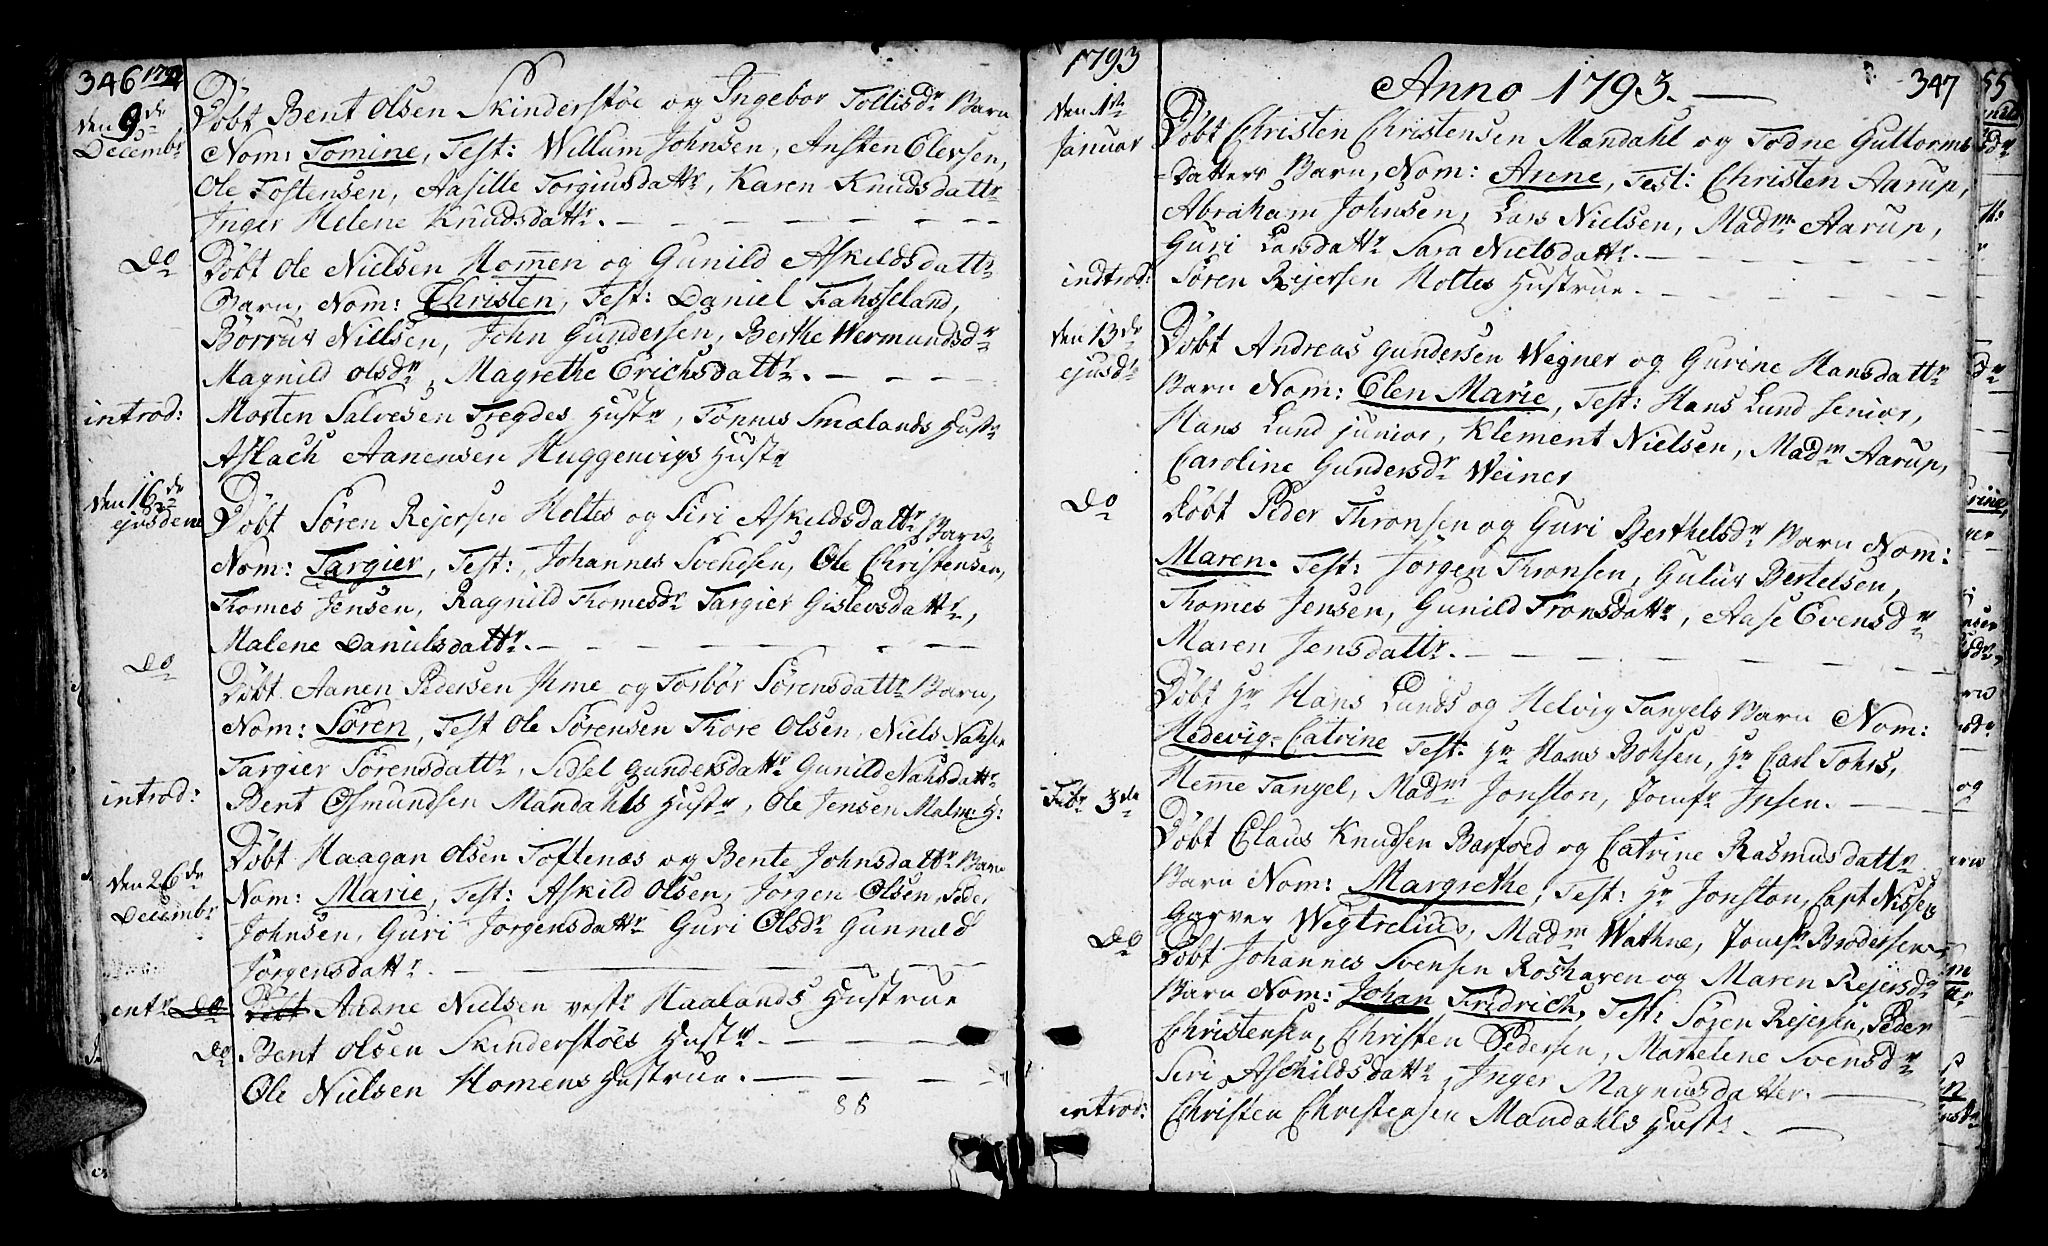 346 1792
den 9de Decembr
Döbt Bent Olsen Skinderstöe og Ingebor Tollisdr Barn
Nom: Tomine, Test: Willum Johnsen, Ansten Elevsen,
Ole Tostensen, Aasille Torgiusdattr, Karen Knudsdattr
Inger Helene Knudsdattr.
Do
Döbt Ole Nielsen Homen og Gunild Askeldsdattr
Barn, Nom: Christen, Test: Daniel Fahsseland,
Börrus Nillsen, John Gundersen, Berthe Wermundsdr
Magnild Olsdr, Magrethe Erichsdattr.
introd: Morten Salvesen Tregdes Hustr, Tönnes Smælands Hustr
Aslach Aanensen Huggenvigs Hustr
den 16de ejusdem
Döbt Sören Rejersen Holtes og Siri Askeldsdattr Barn,
Nom: Targier, Test:, Johannes Svendsen, Ole Christensen,
Thomes Jensen, Ragnild Thomesdr Targier Gislevsdattr,
Malene Danielsdattr.
Do
Döbt Aanen Pedersen Ime og Torbör Sörensdattr Barn,
Nom: Sören, Test Ole Sörensen Thore Olsen, Niels
Targier Sörensdattr, Sidsel Gundersdattr Gunild
introd: Bent Osmundsen Mandahls Hustr, Ole Jensen Malm: H:
den 26de Decembr
Döbt Haagan Olsen Toftenæs og Bente Johnsdattr Barn
Nom: Marie, Test: Askild Olsen, Jörgen Olsen, Peder
Johnsen, Guri Jörgensdattr Guri Olsdr Gunnild
Jörgensdattr.
entr Do Döbt Andne Nielsen vestr Haalands Hustrue
Do Bent Olsen Skinderstöes Hustr.
Ole Nielsen Homens Hustrue.
88
1793
Anno 1793. 347
den 1ste Januar
Döbt Christen Christensen Mandahl og Todne Guttorms
-Datters Barn, Nom: Anne, Test: Christen Aarup,
Abraham Johnsen, Lars Nielsen, Madm Aarup,
Guri Larsdattr Sara Nielsdattr.
indtrod: Sören Rejersen Holtes Hustrue.
den 13de ejusd
Döbt Andreas Gundersen Wegner og Gurine Hansdattr
Barn Nom: Elen Marie, Test: Hans Lund senior,
Hans Lund junior, Klement Nielsen, Madm Aarup,
Caroline Gundersdr Weiner
Do
Döbt Peder Thronsen og Guri Berthelsdr Barn Nom:
Maren. Test: Jörgen Thronsen, Gulur Bertelsen,
Thomes Jensen, Gunild Tronsdattr, Aase Evensdr
Maren Jensdattr.
Döbt Hr Hans Lunds og Helvig Tangels Barn Nom:
Hedevig-Catrine Test: Hr Hans Bohsen, Hr Carl Tohrs,
Hemme Tangel, Madm Jonston, Jomfr Ipsen.
Febr 3de
Döbt Claus Knudsen Barfoed og Catrine Rasmusdattr
Barn Nom: Margrethe, Test: Hr Jonston, Capt Nissen
Garver Wegtrelius, Madm Wathne, Jomfr Brodersen
Do
Döbt Johannes Svensen Roshaven og Maren Rejersdr
Barn Nom: Johan Fridrich, Test: Sören Rejersen, Peder
Christensen, Christen Pedersen, Martelene Svensdr
Siri Aschildsdattr, Inger Magnusdatter.
introd: Christen Christensen Mandahls Hustr.